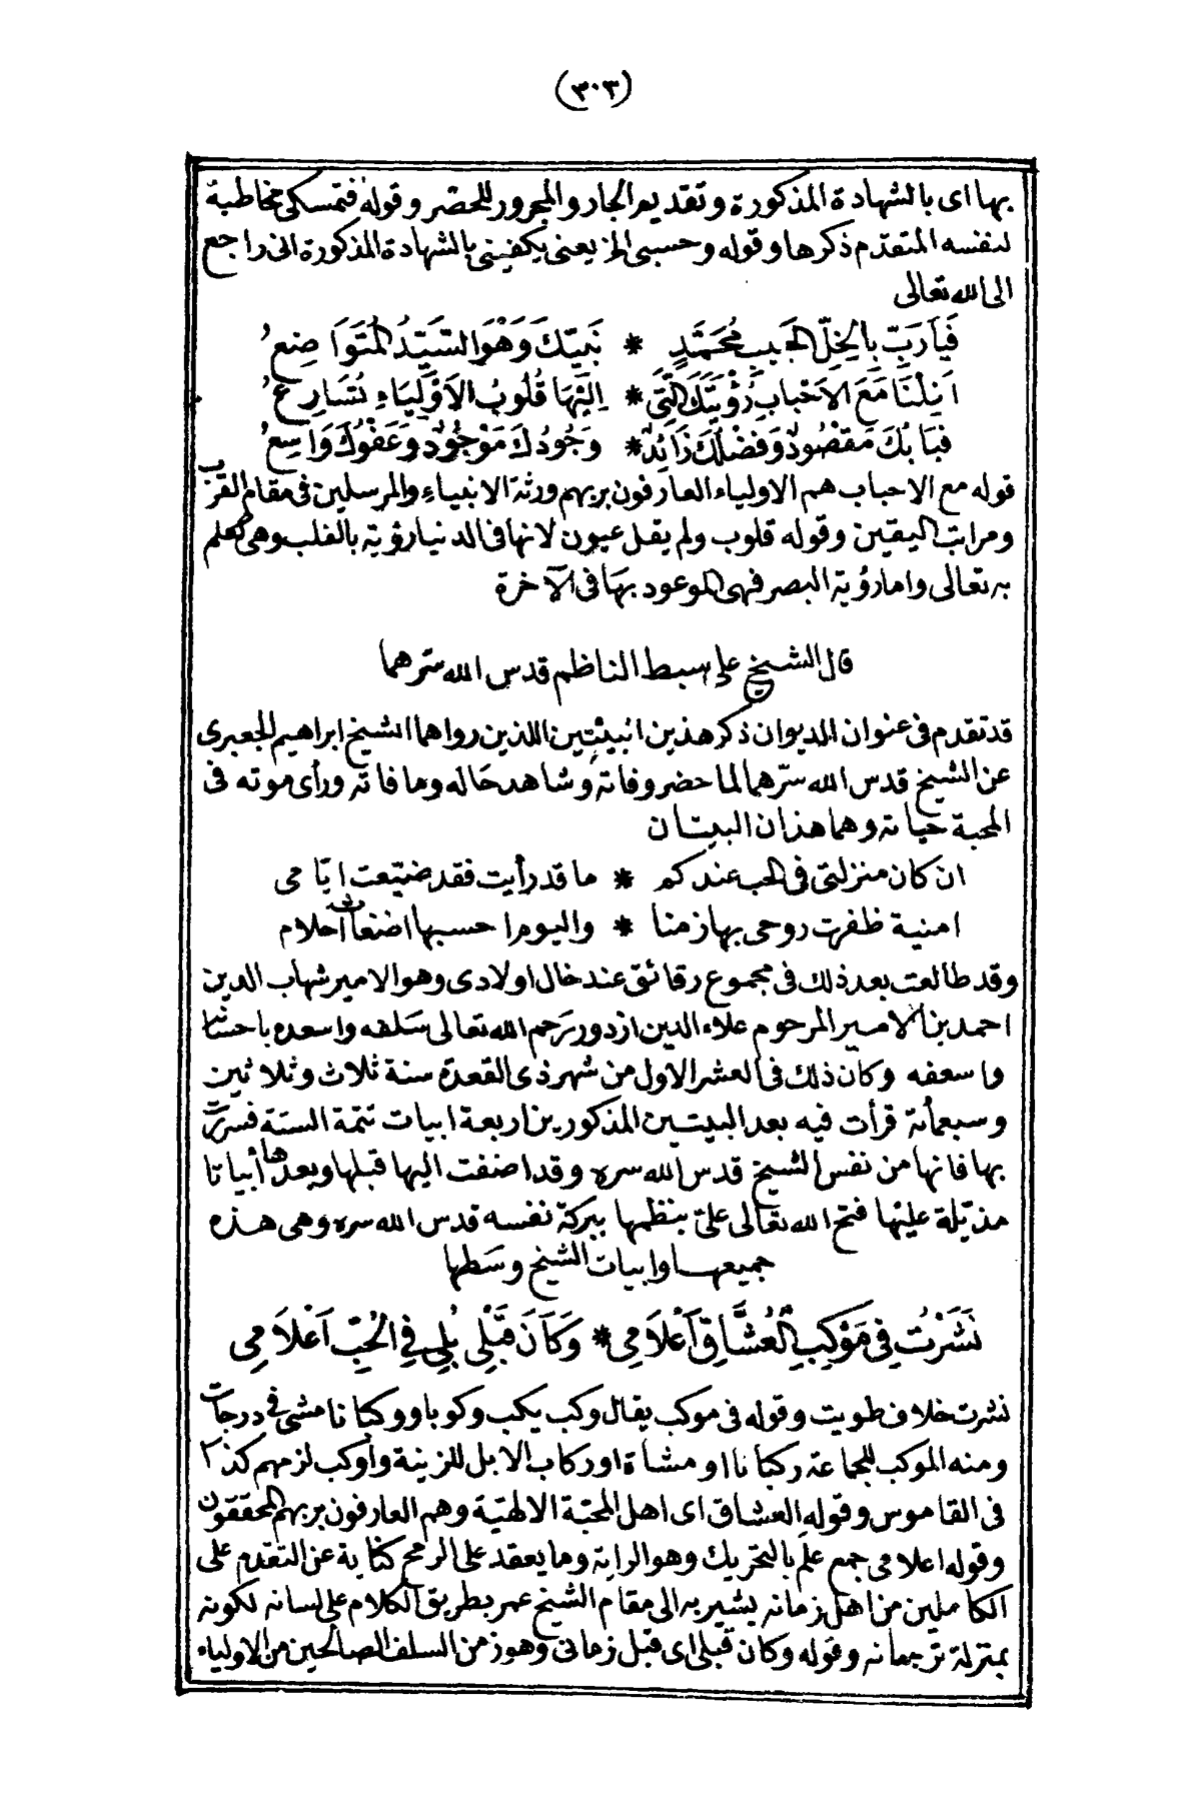 (٣٠٣)
بها اى بالشهادة المذكورة وتقديم الجار والمجرور للحصر وقوله فتمسكى مخاطبة
لنفسه المتقدم ذكرها وقوله وحسبى الخ يعنى يكفينى بالشهادة المذكورة انى راجع
الى الله تعالى
فَيَا رَبِّ بِالْخِلِّ الْحَبِيبِ مُحَمَّدٍ * نَبِيِّكَ وَهْوَ السَّيِّدُ الْمُتَوَاضِعُ
اَنِلْنَا مَعَ الاَحْبَابِ رُؤْيَتَكَ الَّتِى * اِلَيْهَا قُلُوبُ الاَوْلِيَاءِ تُسَارِعُ
فَبَابُكَ مَقْصُودٌ وَفَضْلُكَ زَائِدٌ * وَجُودُكَ مَوْجُودٌ وَعَفْوُكَ وَاسِعُ
قوله مع الاحباب هم الاولياء العارفون بربهم ورثة الانبياء والمرسلين فى مقام القرب
ومراتب اليقين وقوله قلوب ولم يقل عيون لانها فى الدنيا رؤية بالقلب وهى كعلم
به تعالى واما رؤية البصر فهى الموعود بها فى الآخرة
قال الشيخ على سبط الناظم قدس الله سرهما
قد تقدم فى عنوان الديوان ذكر هذين البيتين اللذين رواهما الشيخ ابراهيم الجعبرى
عن الشيخ قدس الله سرّهما لما حضر وفاته وشاهد حاله وما فاته ورأى موته فى
المحبة حياته وهما هذان البيتان
ان كان منزلتى فى الحب عندكم * ما قد رأيت فقد ضيّعت ايّامى
امنية ظفرت روحى بها زمنا * واليوم احسبها اضغاث احلام
وقد طالعت بعد ذلك فى مجموع رقائق عند خال اولادى وهو الامير شهاب الدين
احمد بن الامير المرحوم علاء الدين ازدور رَحمه الله تعالى سَلفه واسعده باحشا
واسعفه وكان ذلك فى العشر الاول من شهر ذى القعدة سنة ثلاث وثلاثين
وسبعمائة قرأت فيه بعد البيتين المذكورين اربعة ابيات تتمة الستة فسررت
بها فانها من نفس الشيخ قدس الله سره وقد اضفت اليها قبلها وبعدها أبياتا
مذيّلة عليْها فتح الله تعالى علىّ بنظمها ببركة نفسه قدس الله سره وهى هذه
جميعها وابيات الشيخ وسَطها
نَشَرْتُ فِى مَوْكِبِ الْعُشَّاقِ اَعْلاَمِى * وَكَانَ قَبْلِى بُلِى فِى الْحُبِّ اَعْلاَمِى
نشرت خلاف طويت وقوله فى موكب يقال وكب يكب وكوبا ووكبانا مشى فى درجات
ومنه الموكب للجماعة ركبانا او مشاة او ركاب الابل للزينة وأوكب لزمهم كذا
فى القاموس وقوله العشاق اى اهل المحبّة الالهيّة وهم العارفون بربهم المحققون
وقوله اعلامى جمع علَم بالتحريك وهو الراية وما يعقد على الرمح كناية عن التقدم على
الكاملين من اهل زمانه يشير به الى مقام الشيخ عمر بطريق الكلام على لسانه لكونه
بمنزلة ترجمانه وقوله وكان قبلى اى قبل زمانى وهو زمن السلف الصالحين من الاولياء